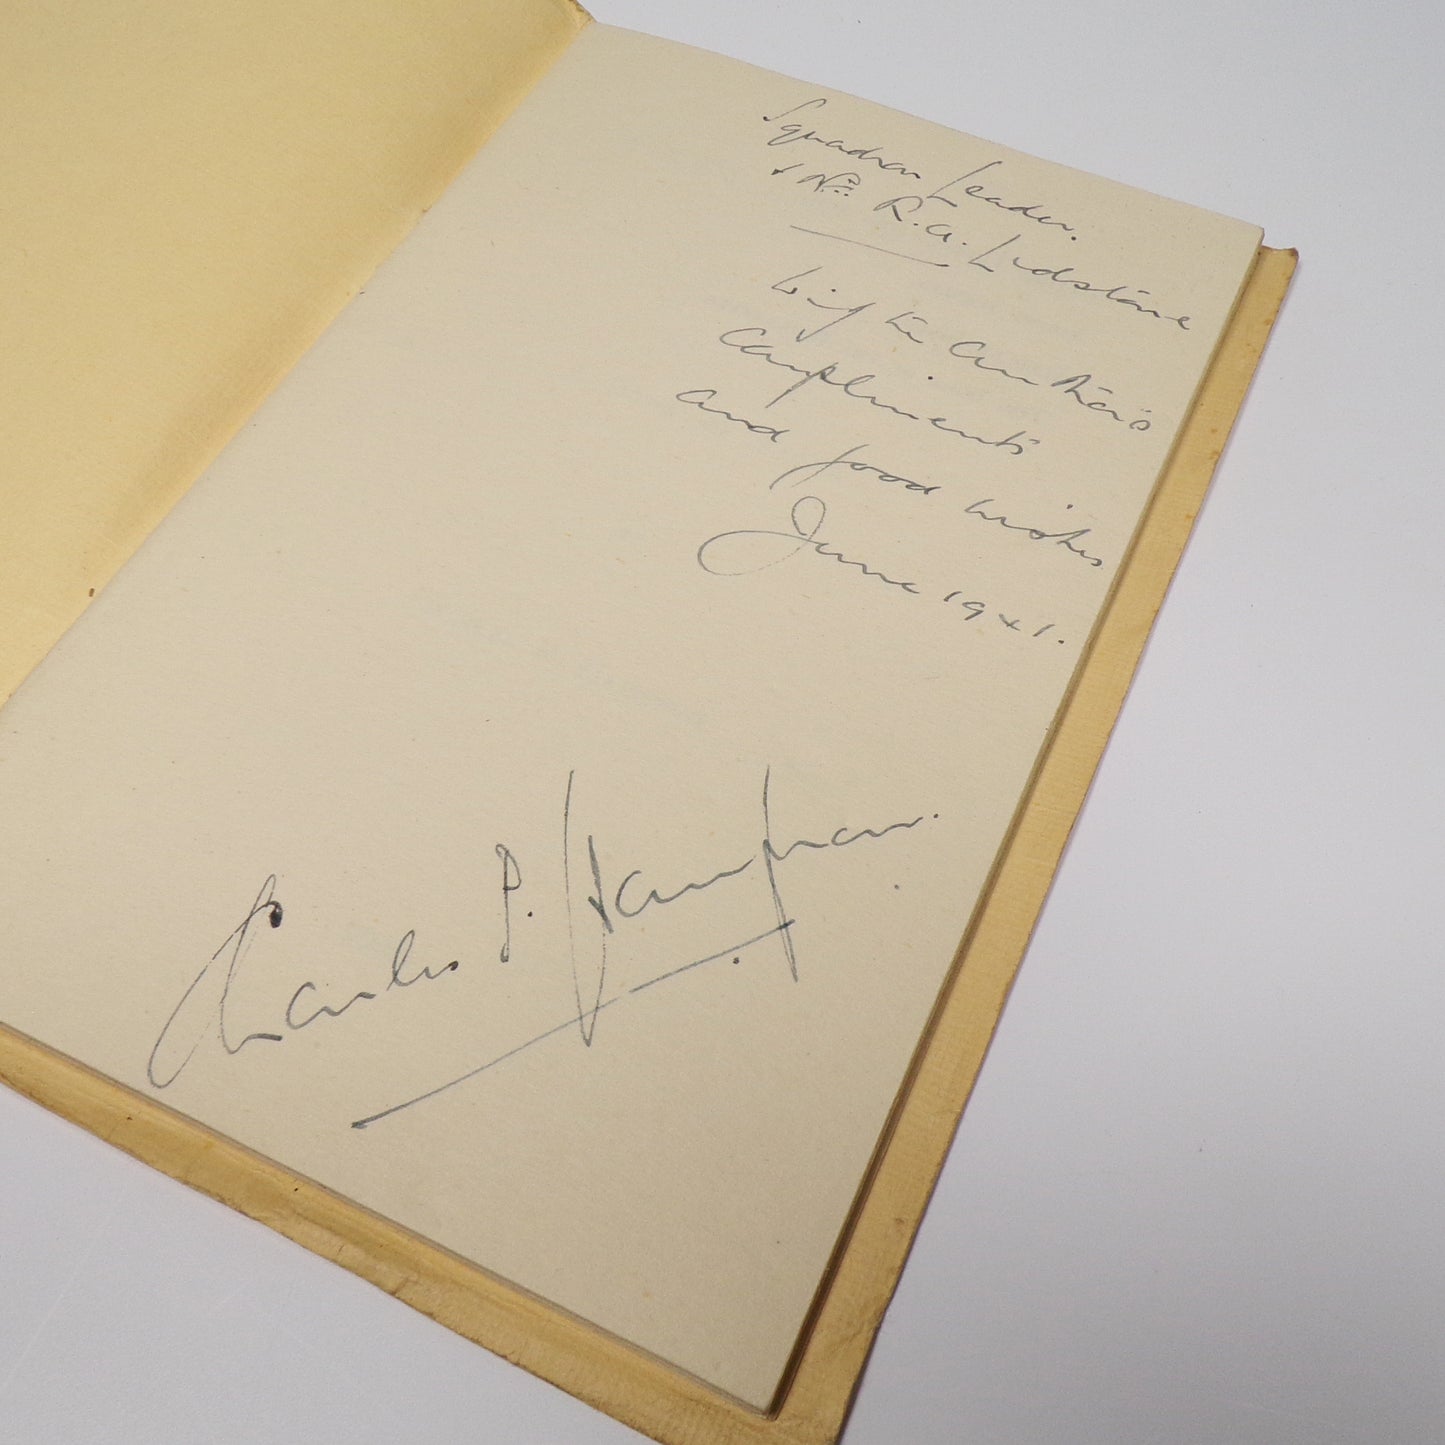 Squadron Leader.
+ Mrs. R.A. Lidstone
With the Author's
Compliments
and good wishes
June 1941.
Charles P. Hampson.